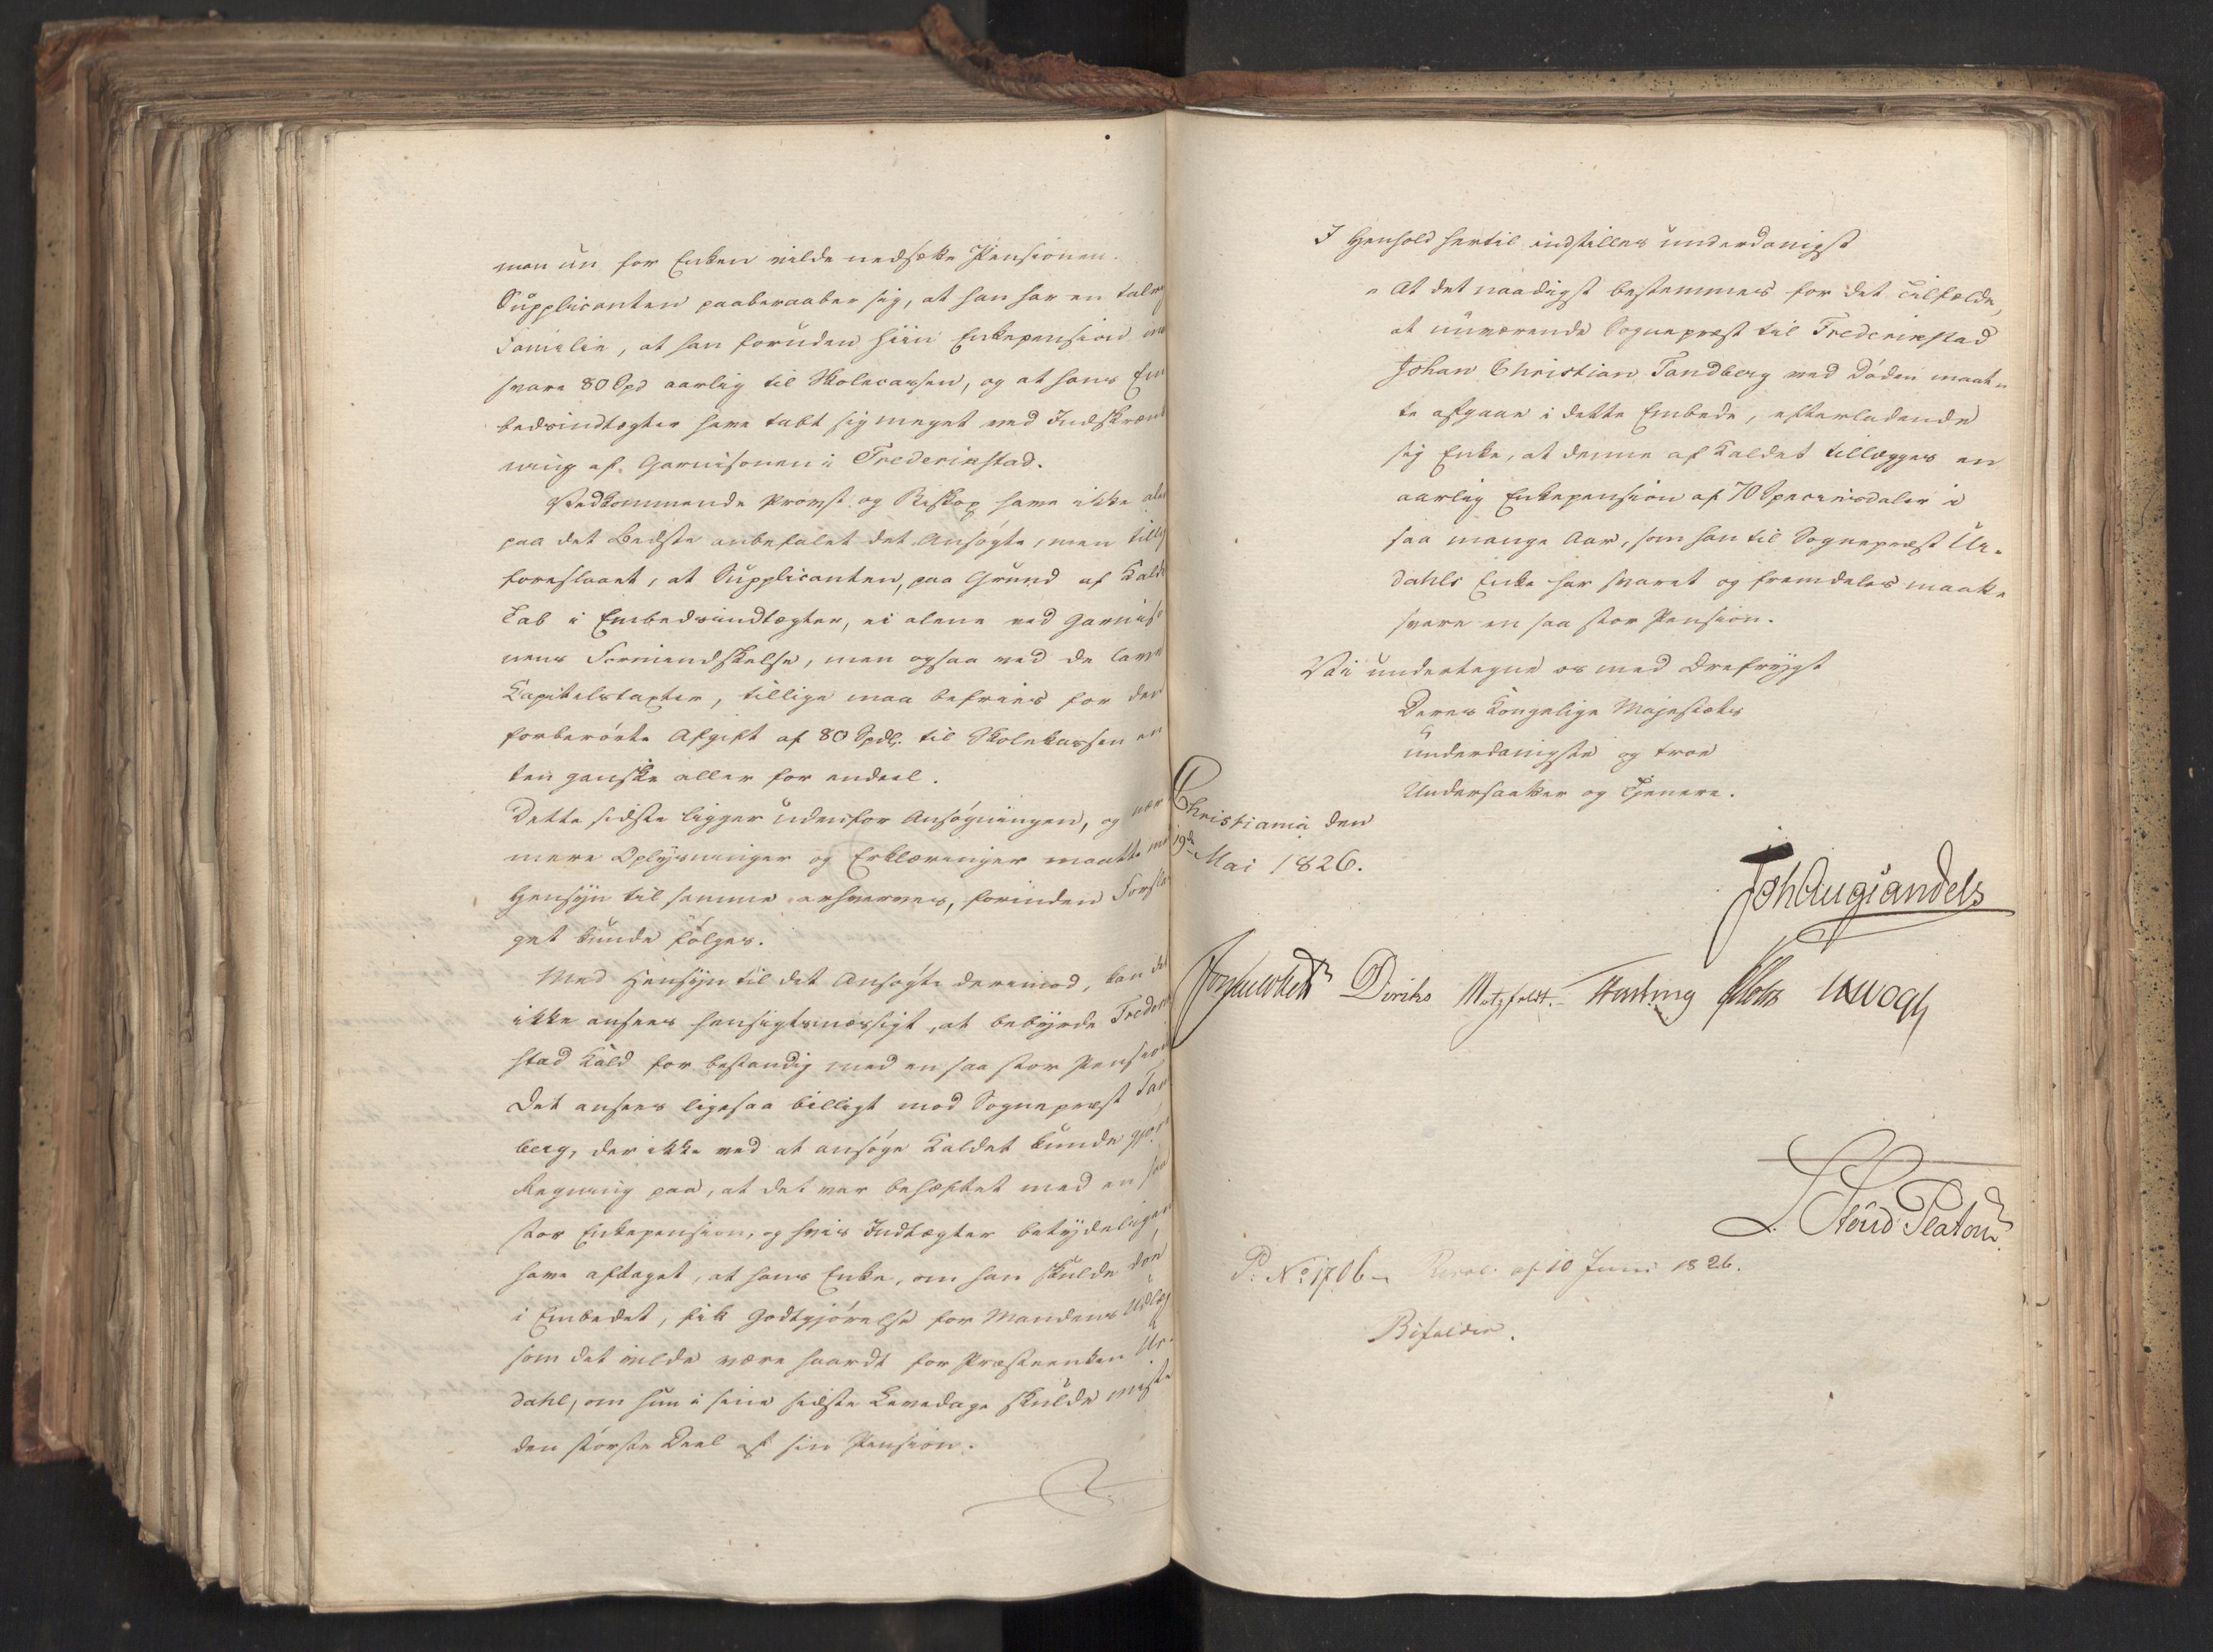 man un for Enken vilde nedsætte Pensionen.
Supplicanten paaberaaber sig, at han har en talr
Familie, at han foruden hiin Enkepension
svare 80 Spd aarlig til Skolecassen, og at hans Em
bedsindtægter have tabt sig meget ved Indskrænk
ning af Garnisonen i Frederikstad.
Vedkommende Provst og Biskop have ikke
paa det Bedste anbefalet det Ansøgte, men till
foreslaaet, at Supplicanten, paa Grund af Kald
Tab i Embedsindtægter, ei alene ved Garniso
nens Formindskelse, men ogsaa ved de lave
Kapitelstaxter, tillige maa befries for den
forberørte Afgift af 80 Spdl. til Skolekassen en
ten ganske eller for endeel.
Dette sidste ligger udenfor Ansøgningen, og nær
mere Oplysninger og Erklæringer maatte med
Hensyn til samme erhverves, forinden Forsla
get kunde følges.
Med Hensyn til det Ansøgte derimod, kan det
ikke ansees hensigtsmæssigt, at bebyrde Frederik
stad Kald for bestandig med en saa stor Pension
Det ansees ligesaa billigt mod Sognepræst Tand
berg, der ikke ved at ansøge Kaldet kunde gjøre
Regning paa, at det var behæftet med en saa
stor Enkepension, og hvis Indtægter betydeligen
have aftaget, at hans Enke, om han skulde døe
i Embedet, fik Godtgjørelse for Mandens Udlæg
som det vilde være haardt for Præsteenken Ur-
dahl, om hun i sine sidste Levedage skulde miste
den største Deel af sin Pension.
I Henhold hertil indstilles underdanigst
" At det naadigst bestemmes for det Tilfælde,
at nuværende Sognepræst til Frederikstad
Johan Christian Tandberg ved Døden maat-
te afgaae i dette Embede, efterladende
sig Enke, at denne af Kaldet tillægges en
aarlig Enkepension af 70 Speciesdaler i
saa mange Aar, som han til Sognepræst Ur-
dahls Enke har svaret og fremdeles maatte
svare en saa stor Pension.
Vi undertegne os med Ærefrygt
Deres Kongelige Majestæts
underdanigste og troe
Undersaatter og Tjenere.
Christiania den
19de Mai 1826.
Joh Aug Sandels
Diriks Motzfeldt. Hertzberg Vogt
P. No 1706 - Resol. af 10 Juni 1826.
Bifaldes.